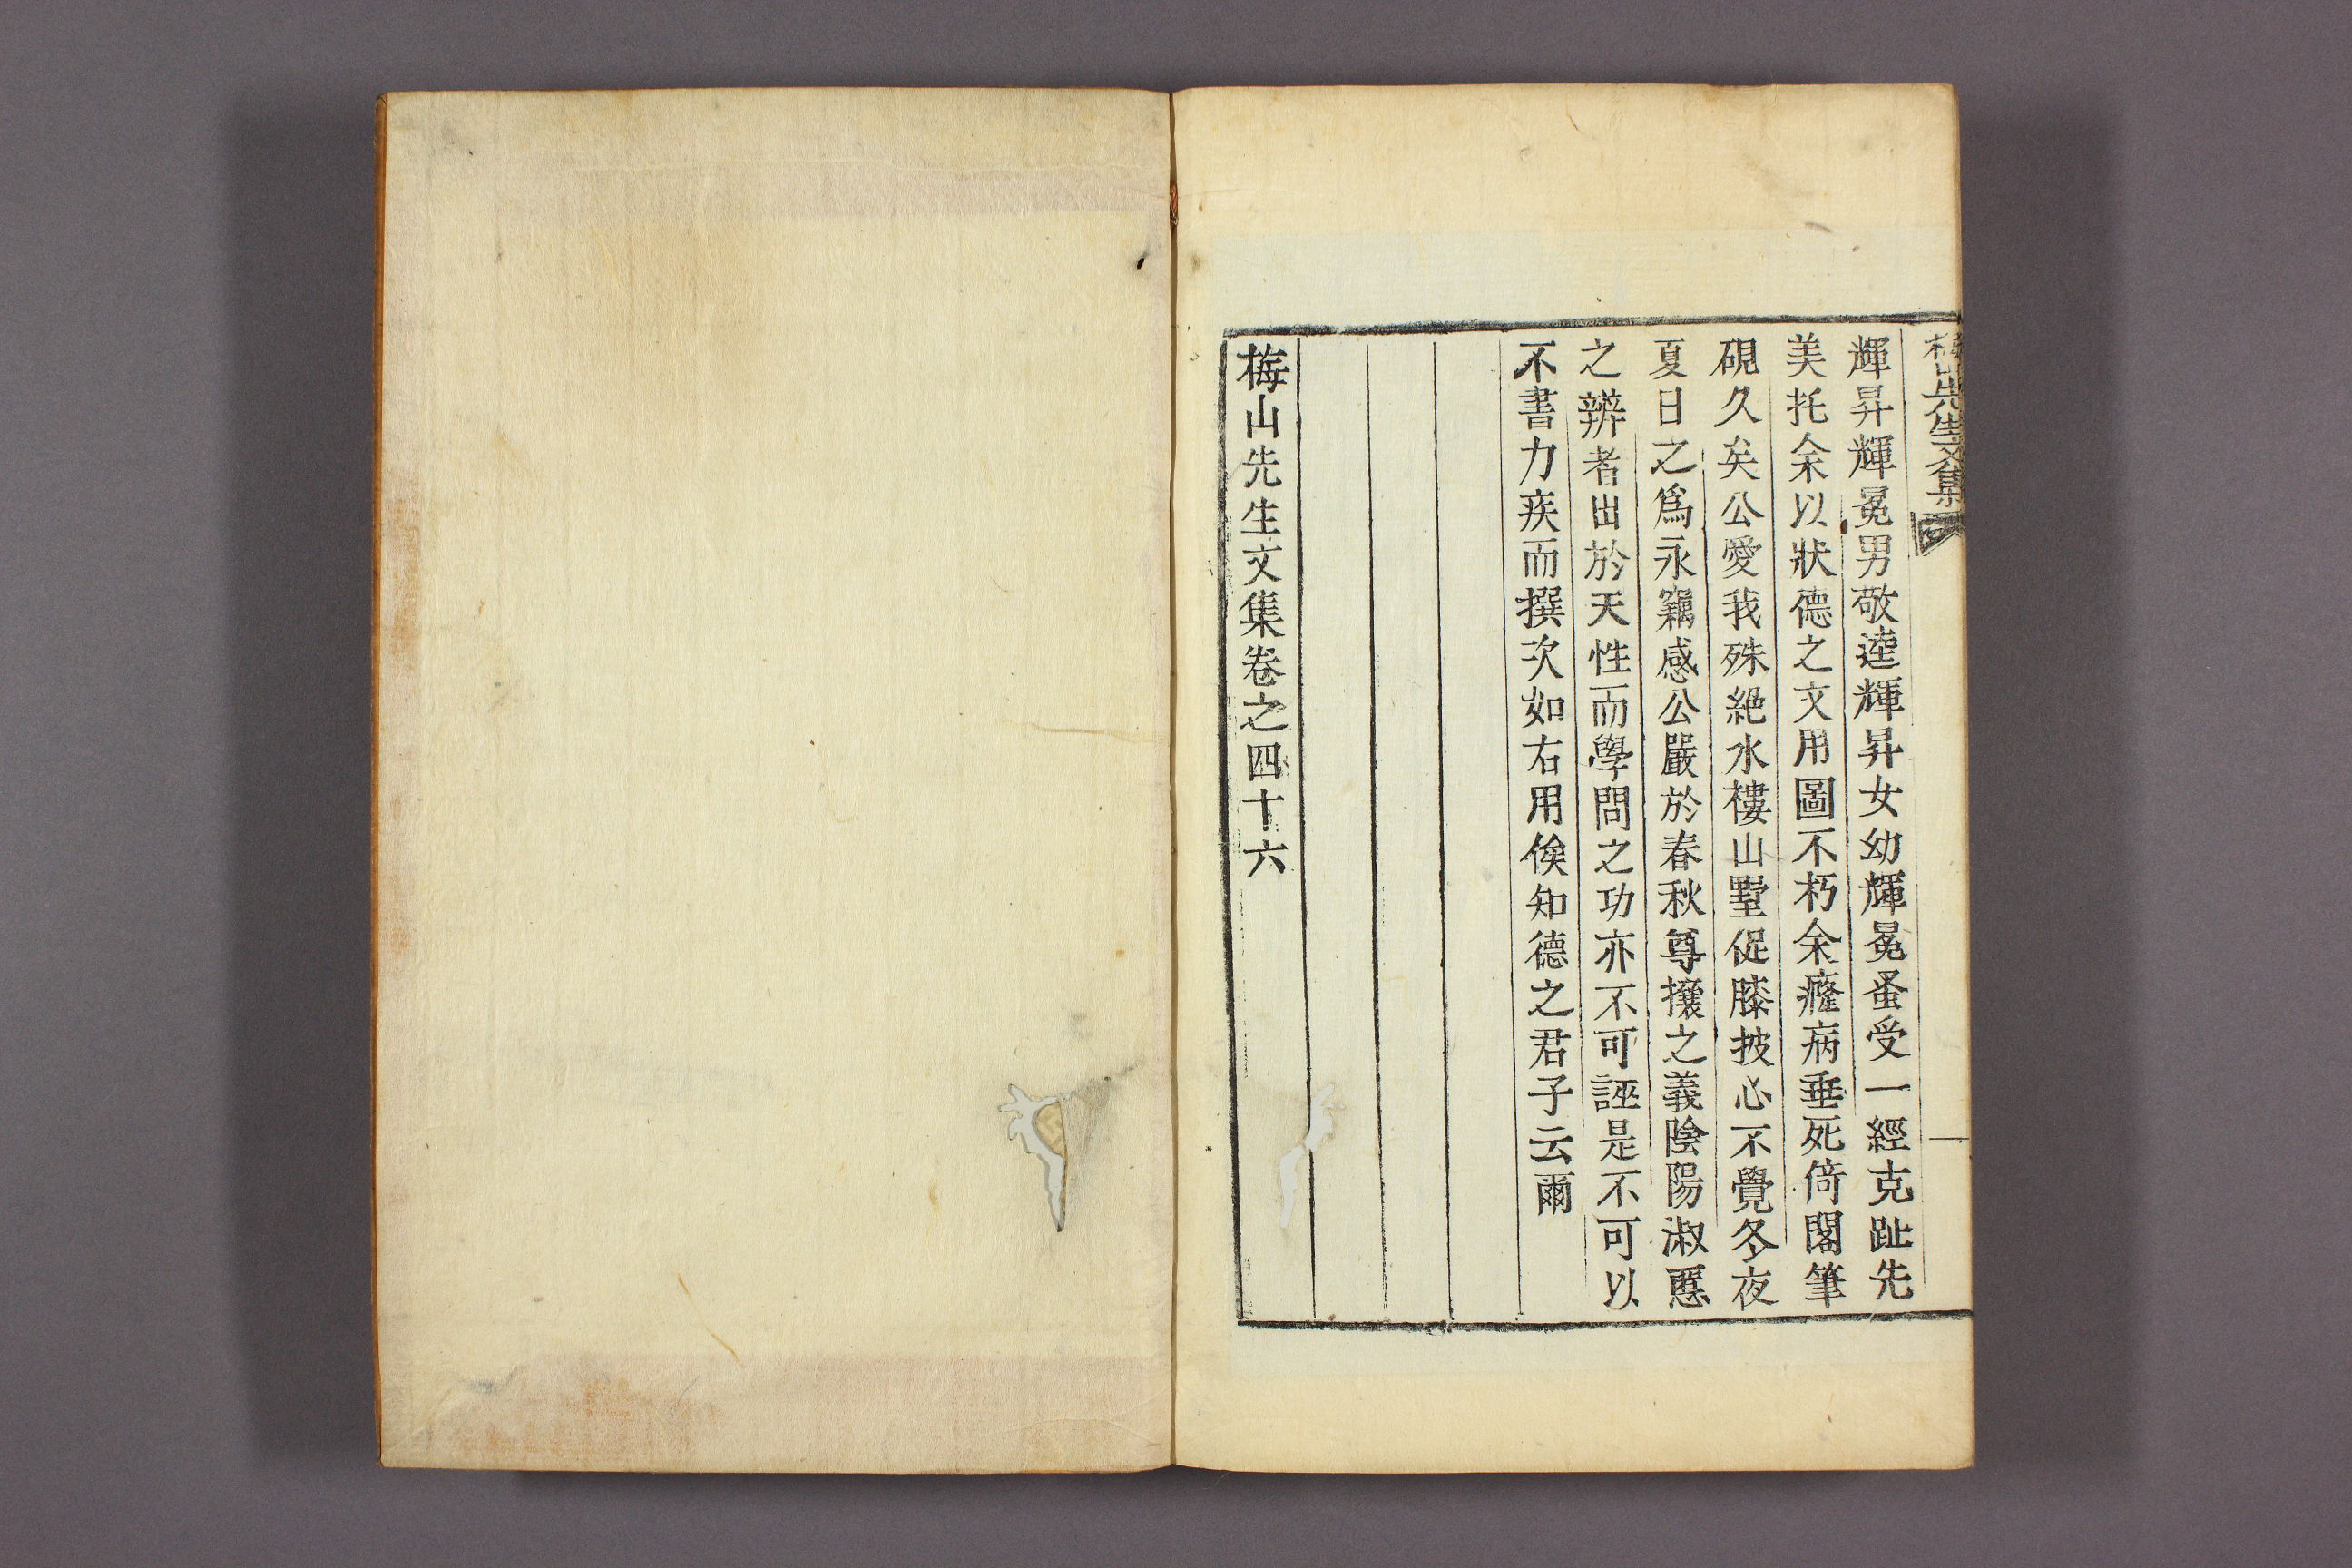 梅山先生文集
輝昇輝冕男敬逵輝昇女幼輝冕蚤受一經克趾先
美托余以狀德之文用圖不朽余癃病垂死倚閣筆
硯久矣公愛我殊絶水樓山墅促膝披心不覺冬夜
夏日之爲永竊感公嚴於春秋尊攘之義陰陽淑慝
之辨者出於天性而學問之功亦不可誣是不可以
不書力疾而撰次如右用俟知德之君子云爾
梅山先生文集卷之四十六